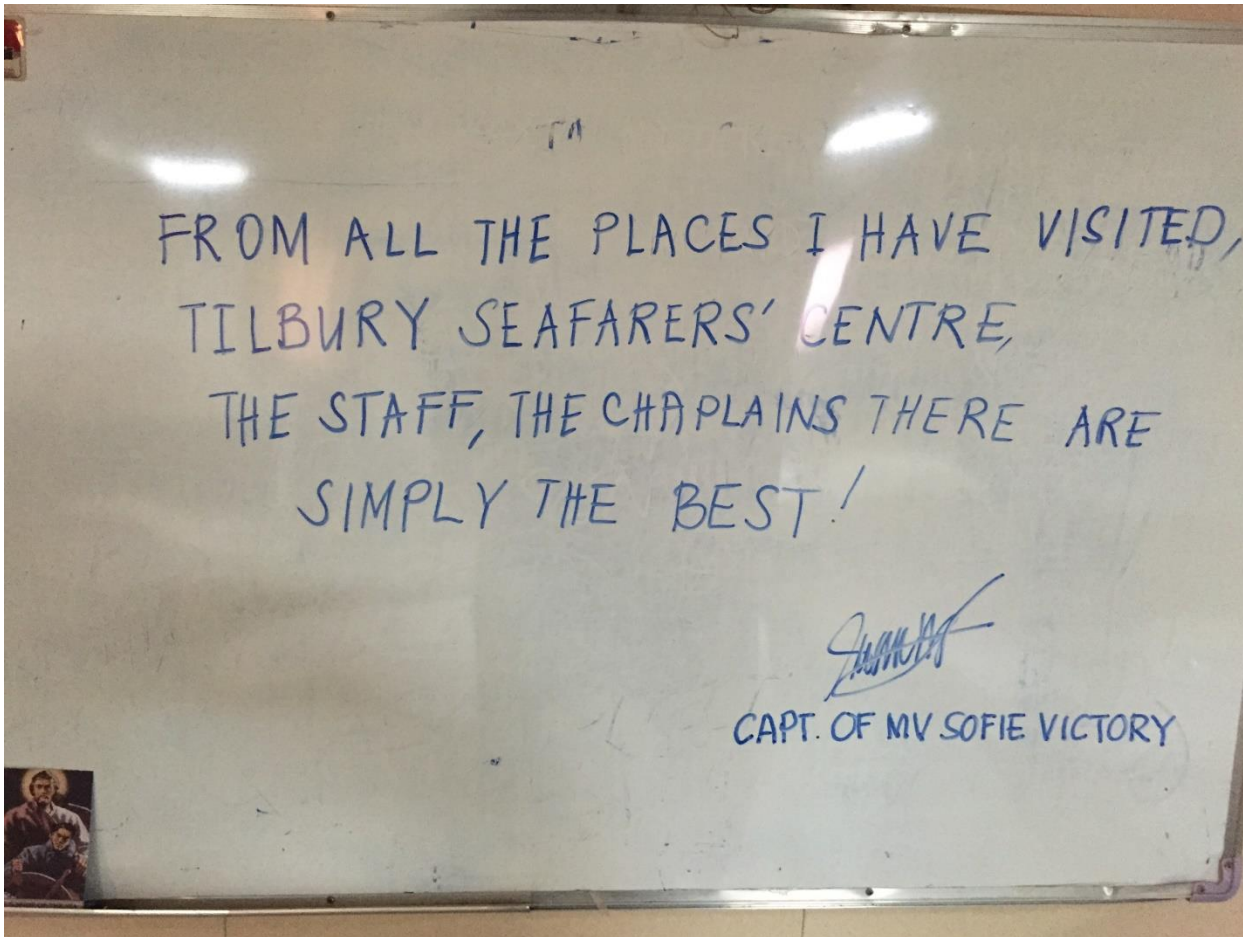 FROM ALL THE PLACES I HAVE VISITED,
TILBURY SEAFARERS' CENTRE,
THE STAFF, THE CHAPLAINS THERE ARE
SIMPLY THE BEST!
CAPT. OF MV SOFIE VICTORY